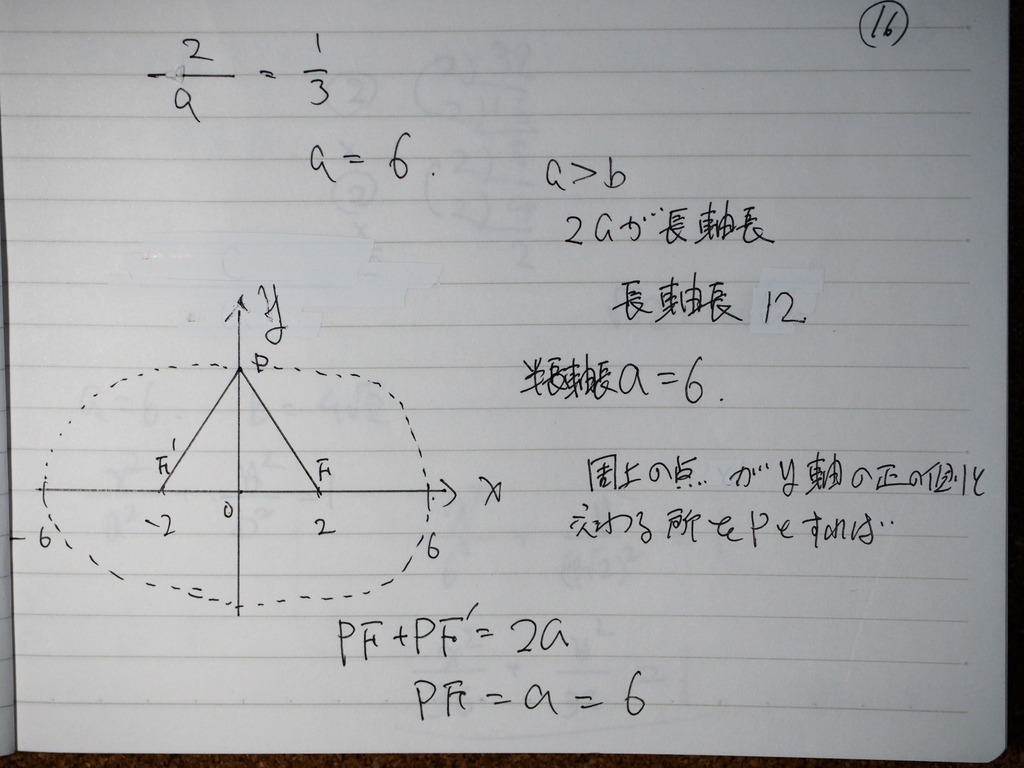 16
2/a = 1/3
a = 6.
a > b
2aが長軸長
長軸長 12
半長軸長 a = 6.
y
P
F' F
-2 0 2 x
-6 6
周上の点がy軸の正の側と
交わる所をPとすれば
PF + PF' = 2a
PF = a = 6